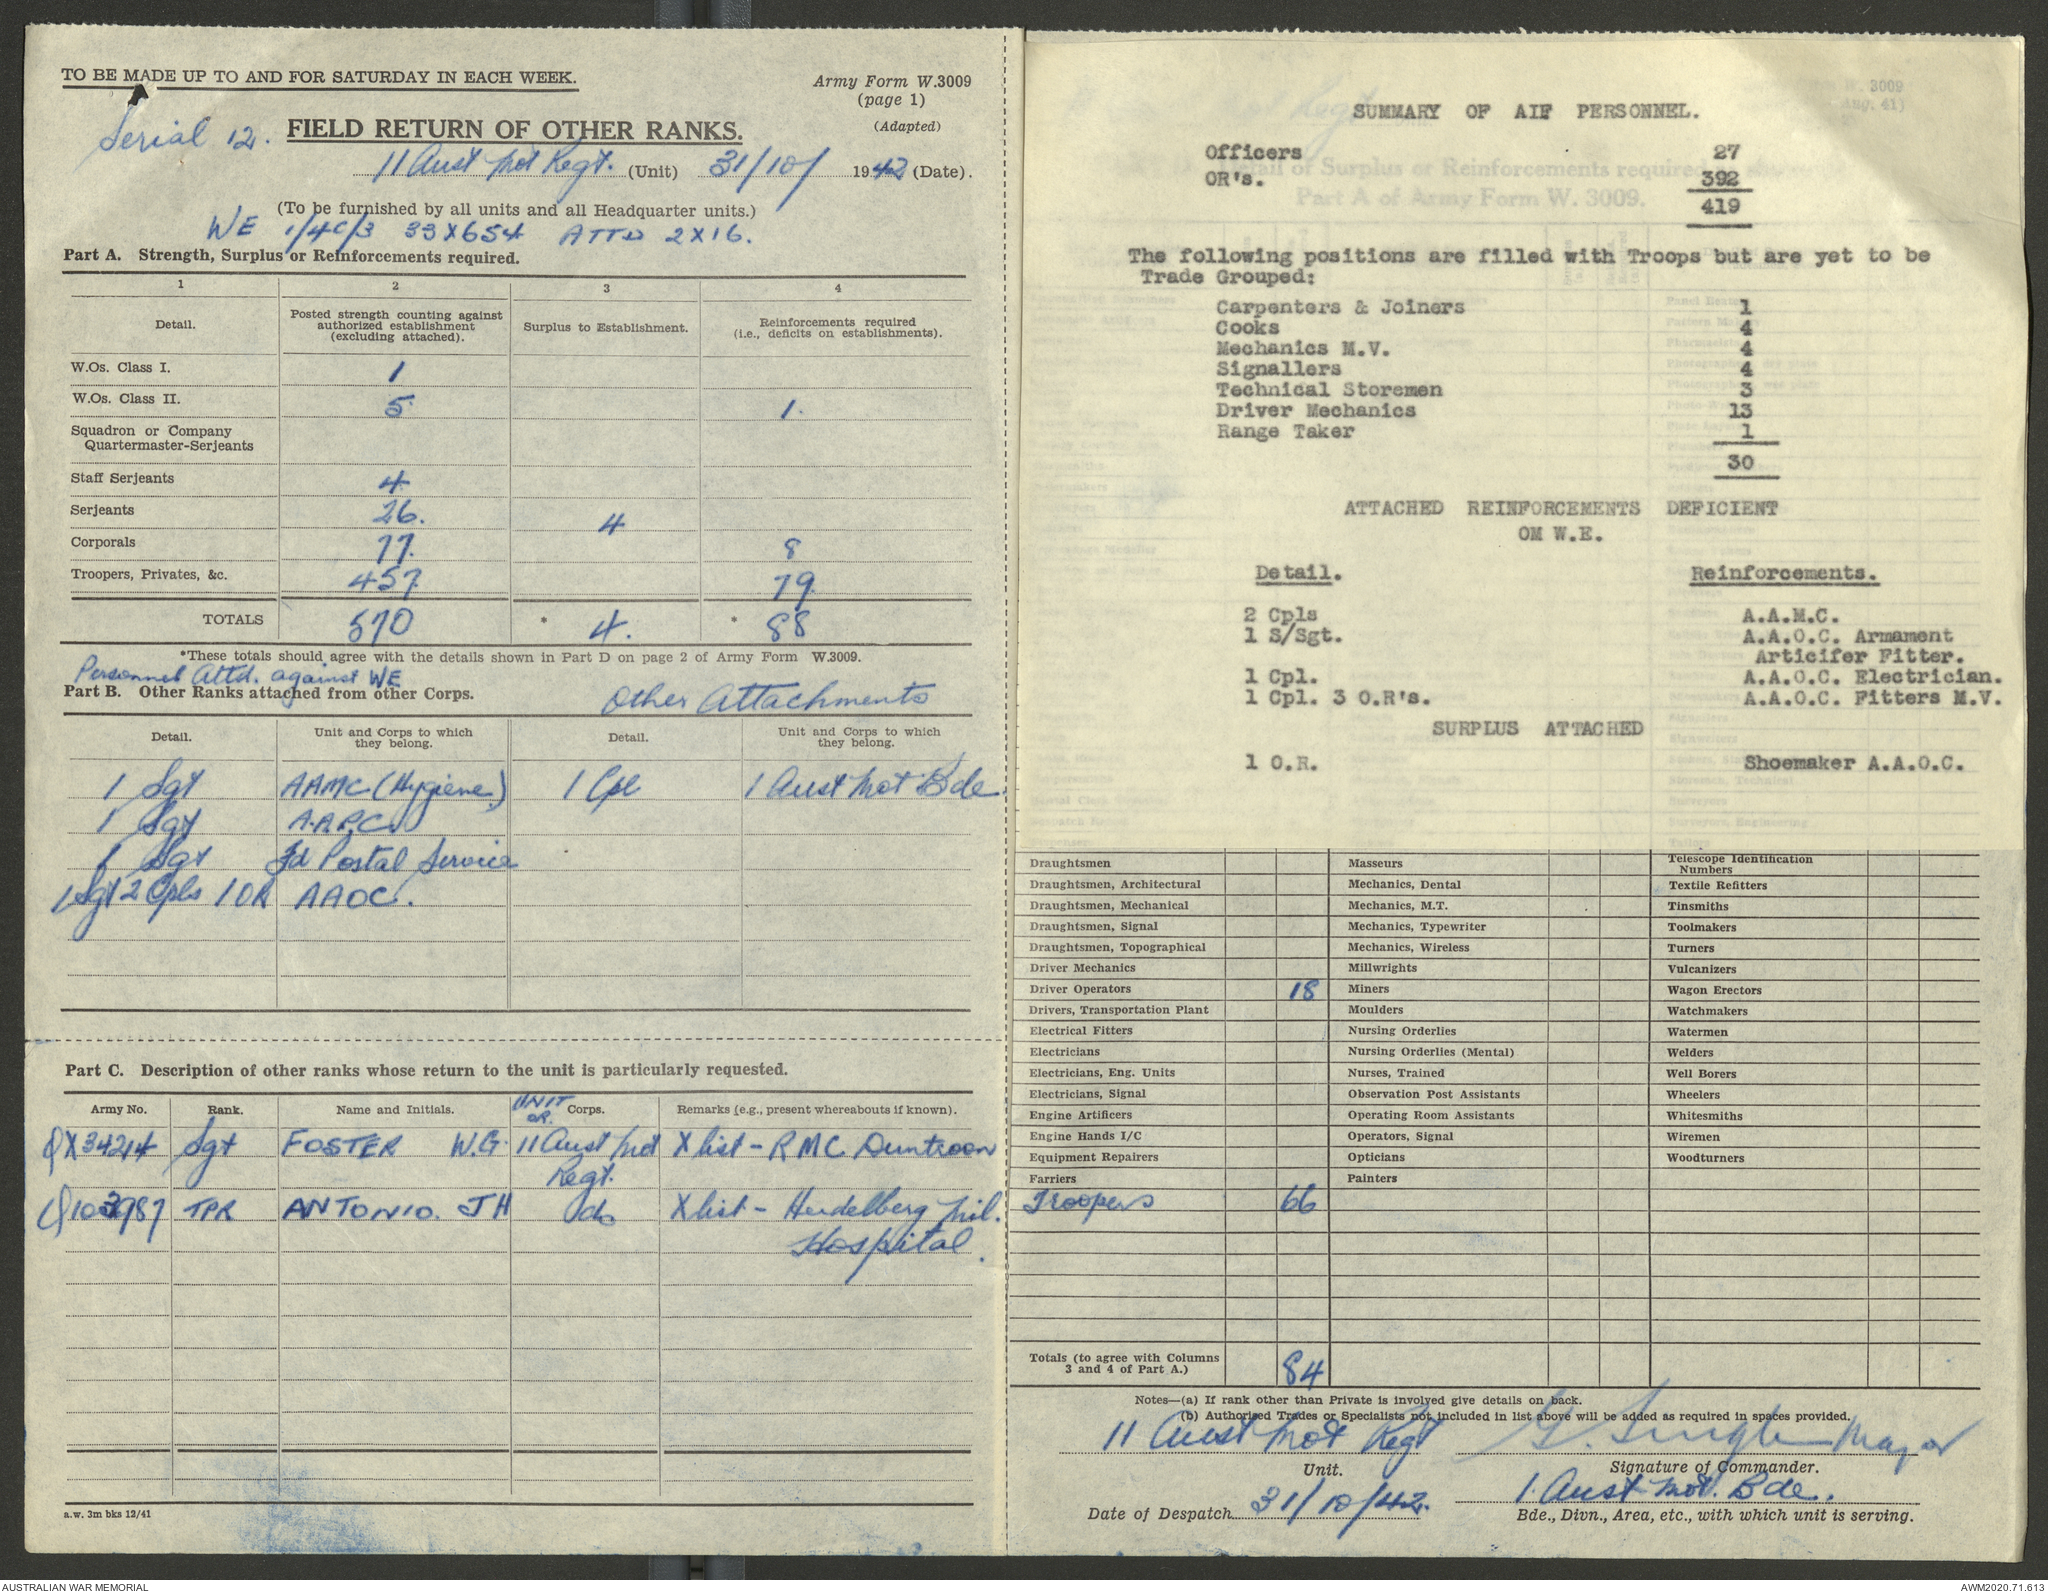 TO BE MADE UP TO AND FOR SATURDAY IN EACH WEEK.
Army Form W.3009
(page 1)
(Adapted)
Serial 12.
FIELD RETURN OF OTHER RANKS.
11 Aust Mot Regt. (Unit) 31/10/ 1942 (Date).
(To be furnished by all units and all Headquarter units.)
WE 1/4C/3 33X654 ATTD 2X16.
Part A. Strength, Surplus or Reinforcements required.
1 2 3 4
Detail. Posted strength counting against authorized establishment (excluding attached). Surplus to Establishment. Reinforcements required (i.e., deficits on establishments).
W.Os. Class I. 1
W.Os. Class II. 5 1.
Squadron or Company
Quartermaster-Serjeants
Staff Serjeants 4
Serjeants 26. 4
Corporals 77. 8
Troopers, Privates, &c. 457 79.
TOTALS 570 * 4. * 88
*These totals should agree with the details shown in Part D on page 2 of Army Form W.3009.
Personnel Attd. against WE
Part B. Other Ranks attached from other Corps. Other Attachments
Detail. Unit and Corps to which they belong. Detail. Unit and Corps to which they belong.
1 Sgt AAMC (Hygiene) 1 Cpl 1 Aust Mot Bde
1 Sgt A.A.P.C.
1 Sgt Fd Postal Service
1 Sgt 2 Cpls 1 OR AAOC.
Part C. Description of other ranks whose return to the unit is particularly requested.
Army No. Rank. Name and Initials. UNIT OR Corps. Remarks (e.g., present whereabouts if known).
QX34214 Sgt FOSTER W.G. 11 Aust Mot Regt. X list - RMC Duntroon
Q103987 TPR ANTONIO. JH do X list - Heidelberg Mil. Hospital.
a.w. 3m bks 12/41
SUMMARY OF AIF PERSONNEL.
Officers 27
OR's. 392
419
The following positions are filled with Troops but are yet to be
Trade Grouped:
Carpenters & Joiners 1
Cooks 4
Mechanics M.V. 4
Signallers 4
Technical Storemen 3
Driver Mechanics 13
Range Taker 1
30
ATTACHED REINFORCEMENTS DEFICIENT
OM W.E.
Detail. Reinforcements.
2 Cpls A.A.M.C.
1 S/Sgt. A.A.O.C. Armament
Articifer Fitter.
1 Cpl. A.A.O.C. Electrician.
1 Cpl. 3 O.R's. A.A.O.C. Fitters M.V.
SURPLUS ATTACHED
1 O.R. Shoemaker A.A.O.C.
Draughtsmen Masseurs Telescope Identification Numbers
Draughtsmen, Architectural Mechanics, Dental Textile Refitters
Draughtsmen, Mechanical Mechanics, M.T. Tinsmiths
Draughtsmen, Signal Mechanics, Typewriter Toolmakers
Draughtsmen, Topographical Mechanics, Wireless Turners
Driver Mechanics Millwrights Vulcanizers
Driver Operators 18 Miners Wagon Erectors
Drivers, Transportation Plant Moulders Watchmakers
Electrical Fitters Nursing Orderlies Watermen
Electricians Nursing Orderlies (Mental) Welders
Electricians, Eng. Units Nurses, Trained Well Borers
Electricians, Signal Observation Post Assistants Wheelers
Engine Artificers Operating Room Assistants Whitesmiths
Engine Hands I/C Operators, Signal Wiremen
Equipment Repairers Opticians Woodturners
Farriers Painters
Troopers 66
Totals (to agree with Columns 3 and 4 of Part A.) 84
Notes—(a) If rank other than Private is involved give details on back.
(b) Authorised Trades or Specialists not included in list above will be added as required in spaces provided.
11 Aust Mot Regt Major
Unit. Signature of Commander.
Date of Despatch 31/10/42. 1. Aust Mot. Bde.
Bde., Divn., Area, etc., with which unit is serving.
AUSTRALIAN WAR MEMORIAL
AWM2020.71.613